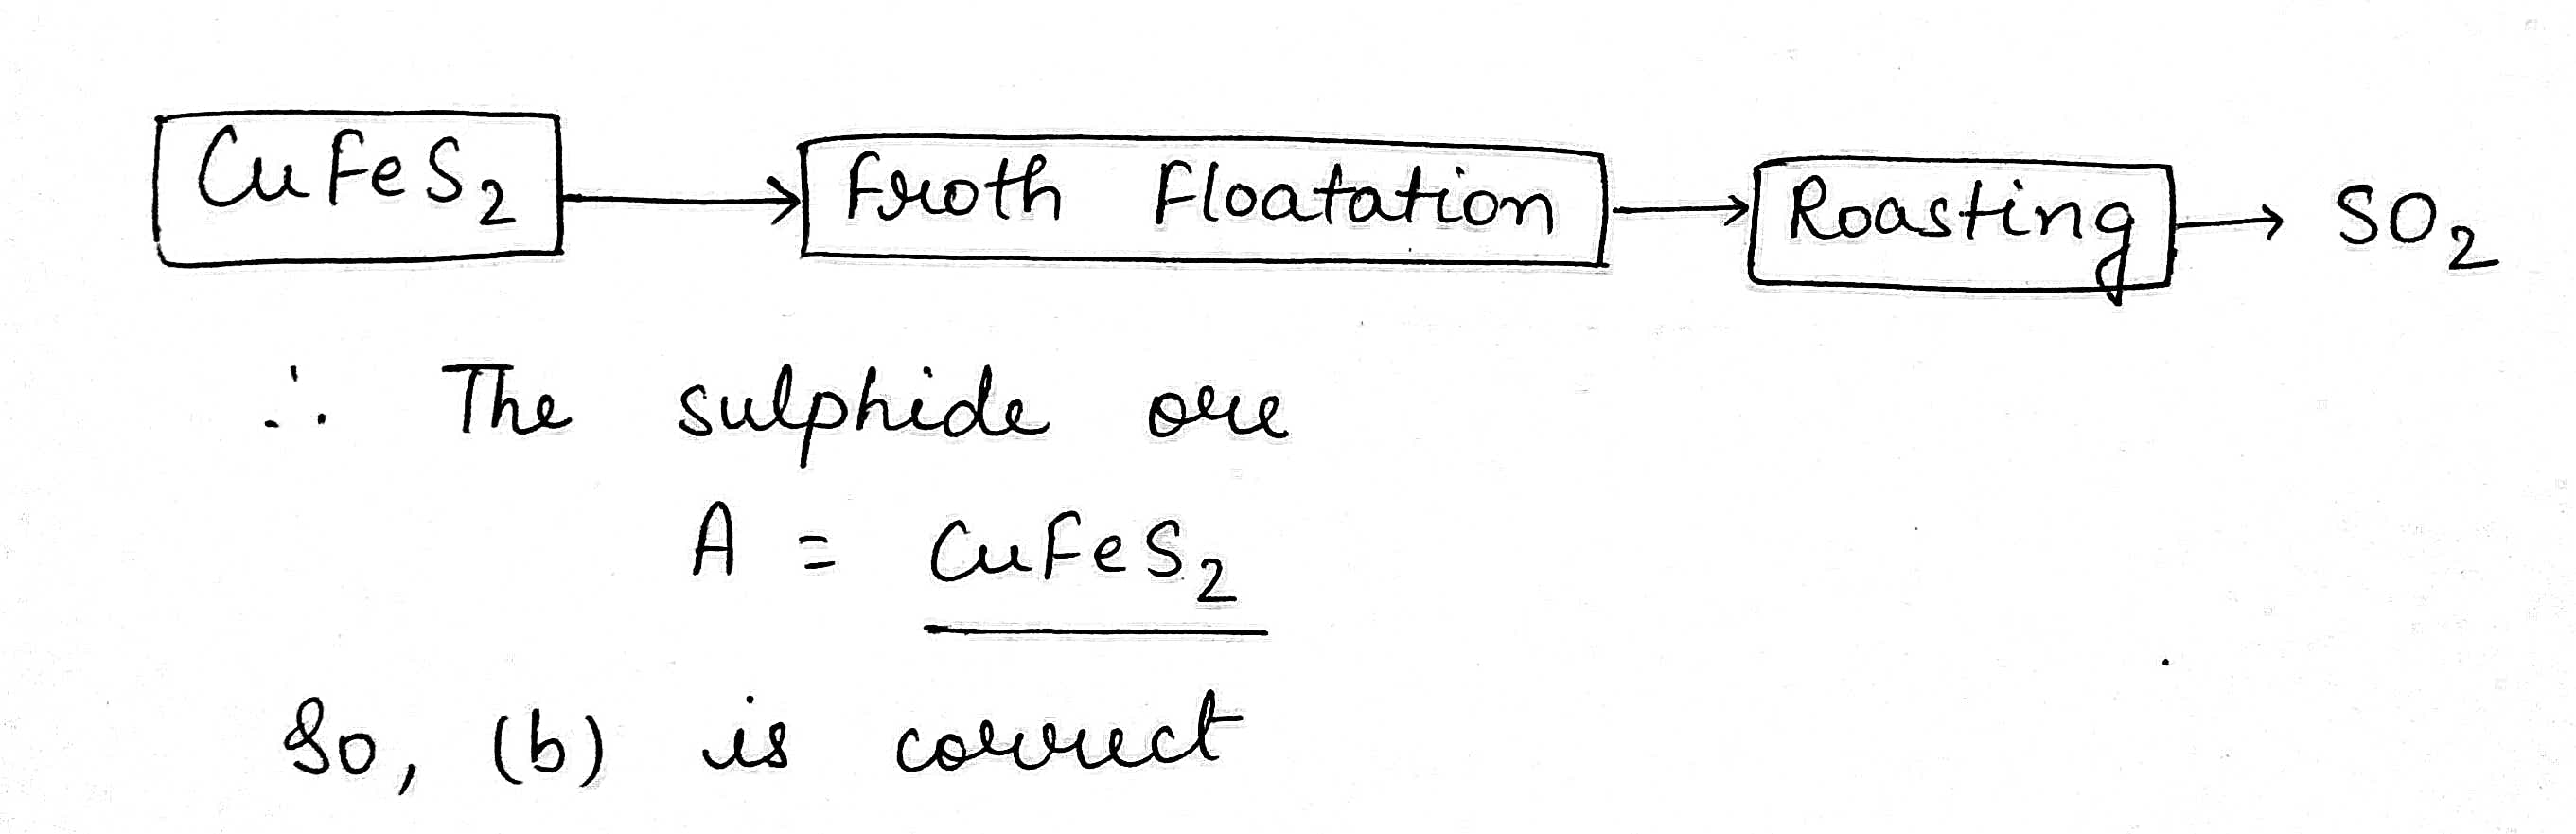 CuFeS₂ → Froth Floatation → Roasting → SO₂
∴ The sulphide ore
A = CuFeS₂
So, (b) is correct